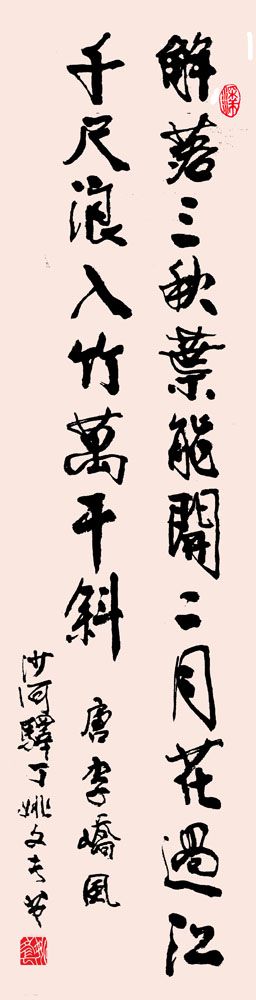 解落三秋葉能開二月花過江
千尺浪入竹萬干斜
唐李嶠風
沙河驛丁姚文夫